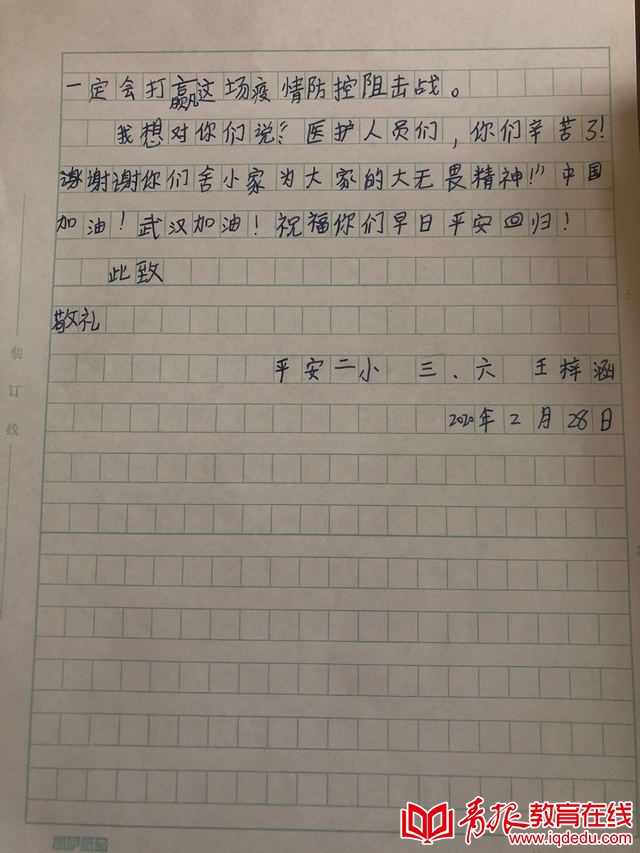 一定会打赢这场疫情防控阻击战。
我想对你们说:“医护人员们,你们辛苦了!
谢谢你们舍小家为大家的大无畏精神!”中国
加油!武汉加油!祝福你们早日平安回归!
此致
敬礼
平安二小 三、六 王梓涵
2020年2月28日
装订线
青报教育在线
www.iqdedu.com